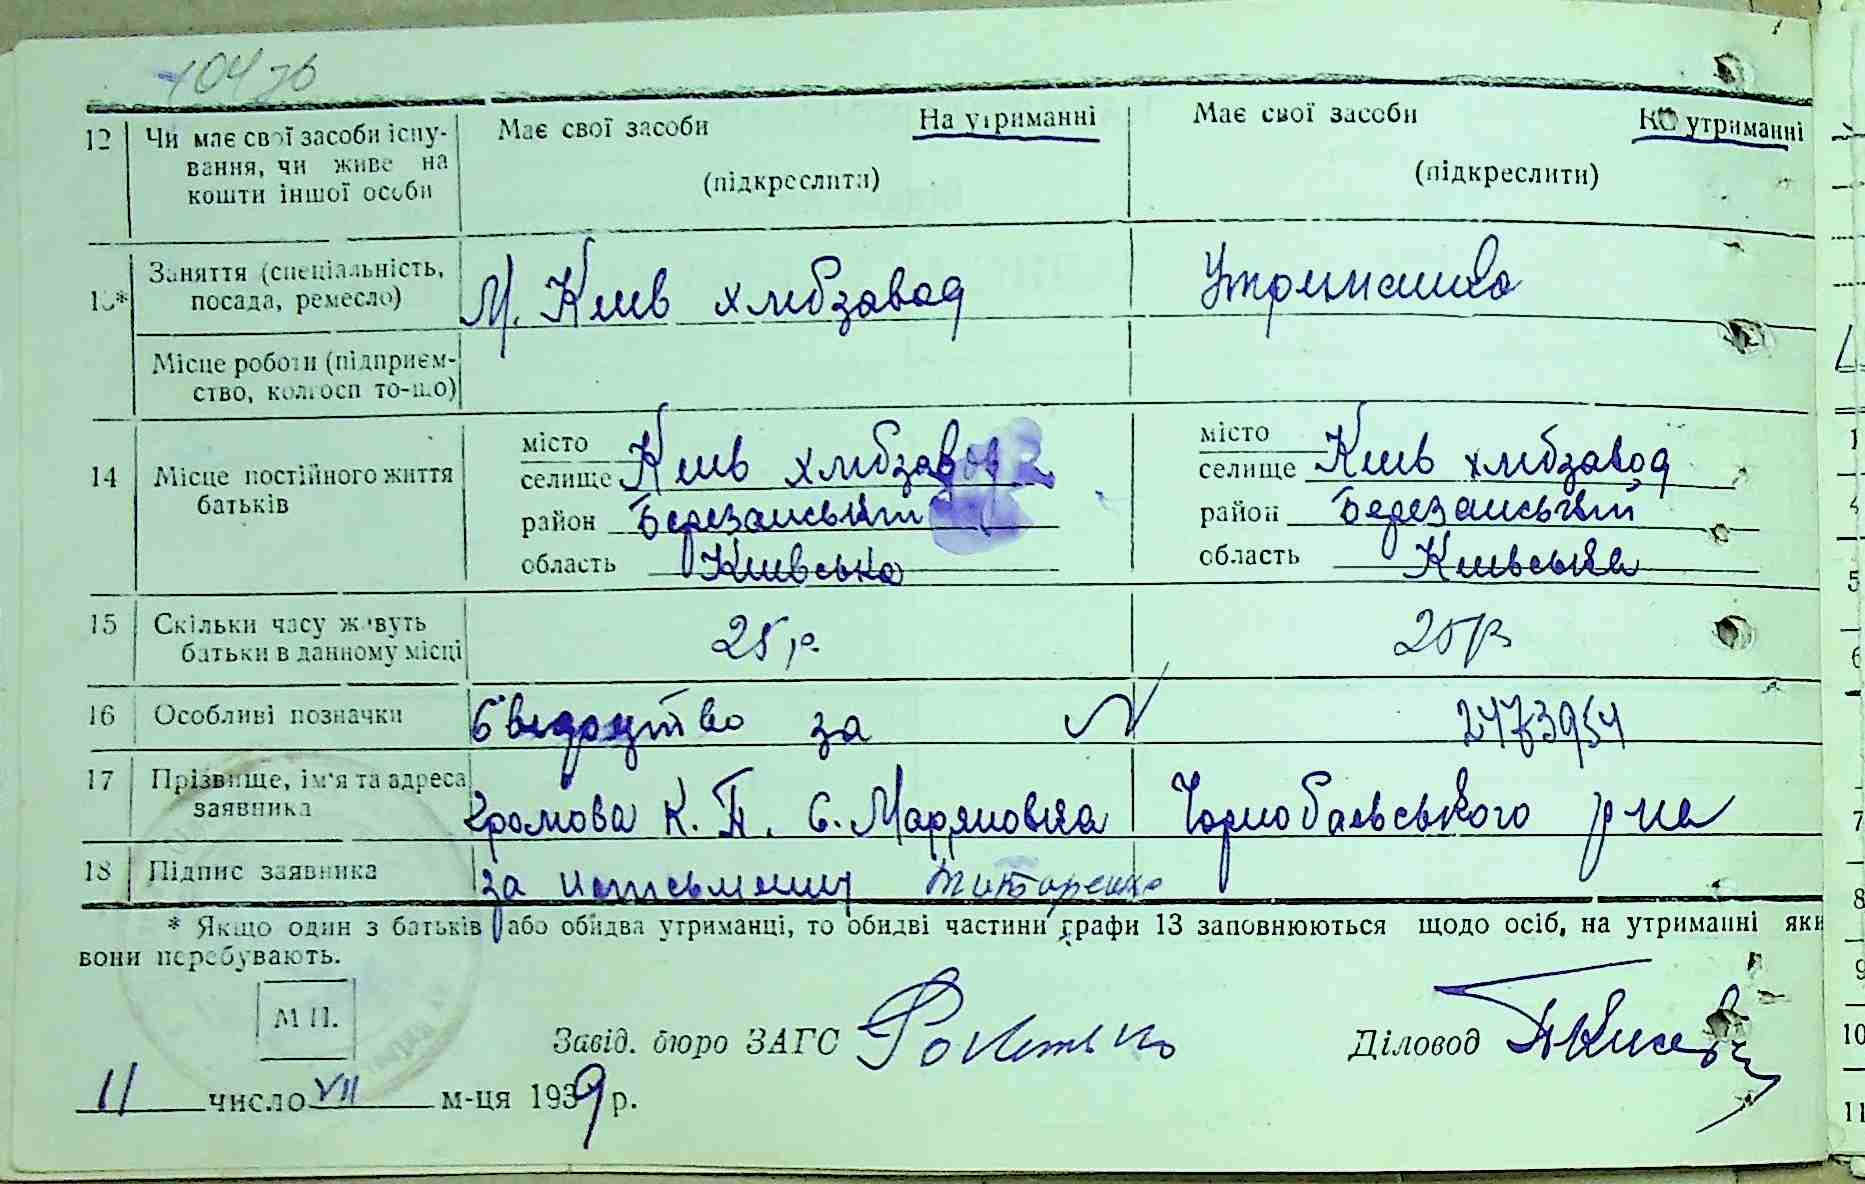 104 зв
12 Чи має свої засоби існування, чи живе на кошти іншої особи
Має свої засоби На утриманні
(підкреслити)
Має свої засоби На утриманні
(підкреслити)
13* Заняття (спеціальність, посада, ремесло)
М. Київ хлібзавод
Утриманка
Місце роботи (підприємство, колгосп то-що)
14 Місце постійного життя батьків
місто
селище Київ хлібзавод
район Березанський
область Київська
місто
селище Київ хлібзавод
район Березанський
область Київська
15 Скільки часу живуть батьки в данному місці
25 р
20 р
16 Особливі позначки
Свидоцтво за N 2473954
17 Прізвище, ім'я та адреса заявника
Громова К. П. С. Мар'яновка Чорнобаевського р-на
18 Підпис заявника
за неписьмену Титаренко
* Якщо один з батьків або обидва утриманці, то обидві частини графи 13 заповнюються щодо осіб, на утриманні яки
вони перебувають.
М П.
Завід. бюро ЗАГС
Діловод
11 число VII м-ця 1939 р.